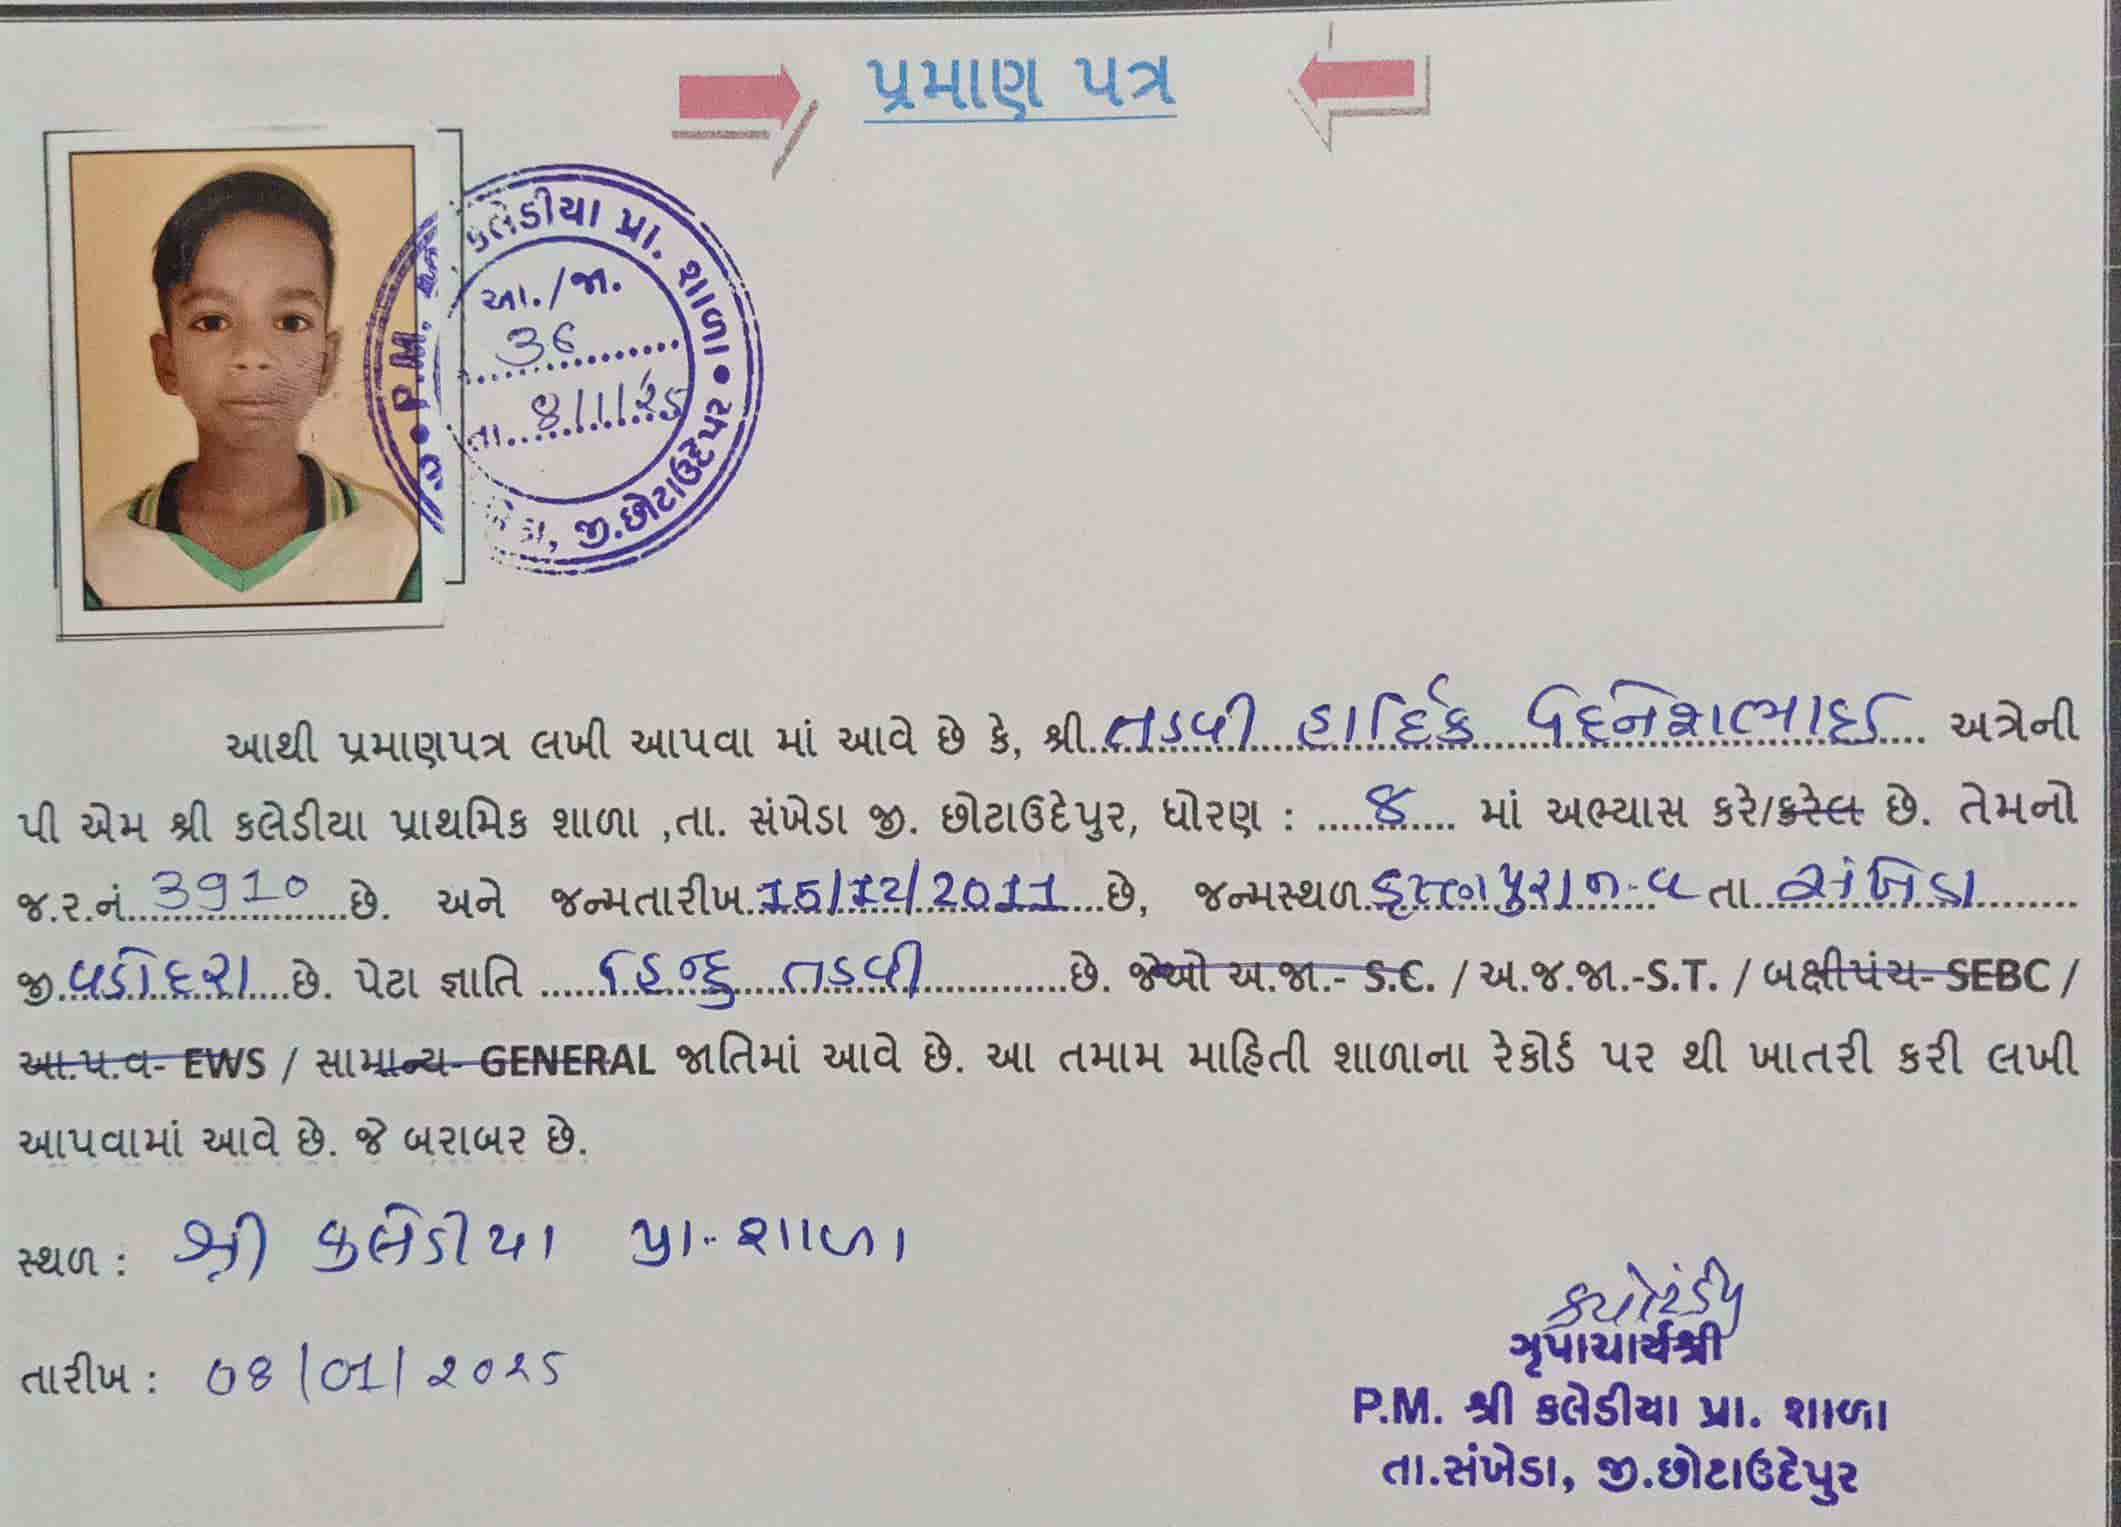 પ્રમાણ પત્ર
P.M. કલેડીયા પ્રા. શાળા
આ./જા.
36
તા. ૪/૧/૨૫
જી.છોટાઉદેપુર
આથી પ્રમાણપત્ર લખી આપવા માં આવે છે કે, શ્રી તડવી હાર્દિક દિનેશભાઈ અત્રેની
પી એમ શ્રી કલેડીયા પ્રાથમિક શાળા ,તા. સંખેડા જી. છોટાઉદેપુર, ધોરણ : ૪ માં અભ્યાસ કરે/કરેલ છે. તેમનો
જ.ર.નં 3910 છે. અને જન્મતારીખ 15/12/2011 છે, જન્મસ્થળ તા સંખેડા
જી વડોદરા છે. પેટા જ્ઞાતિ હિન્દુ તડવી છે. જેઓ અ.જા.- S.C. / અ.જ.જા.-S.T. / બક્ષીપંચ- SEBC /
આ.પ.વ- EWS / સામાન્ય- GENERAL જાતિમાં આવે છે. આ તમામ માહિતી શાળાના રેકોર્ડ પર થી ખાતરી કરી લખી
આપવામાં આવે છે. જે બરાબર છે.
સ્થળ : શ્રી કલેડીયા પ્રા. શાળા
તારીખ : 0૪/01/૨૦૨૫
P.M. શ્રી કલેડીયા પ્રા. શાળા
તા.સંખેડા, જી.છોટાઉદેપુર